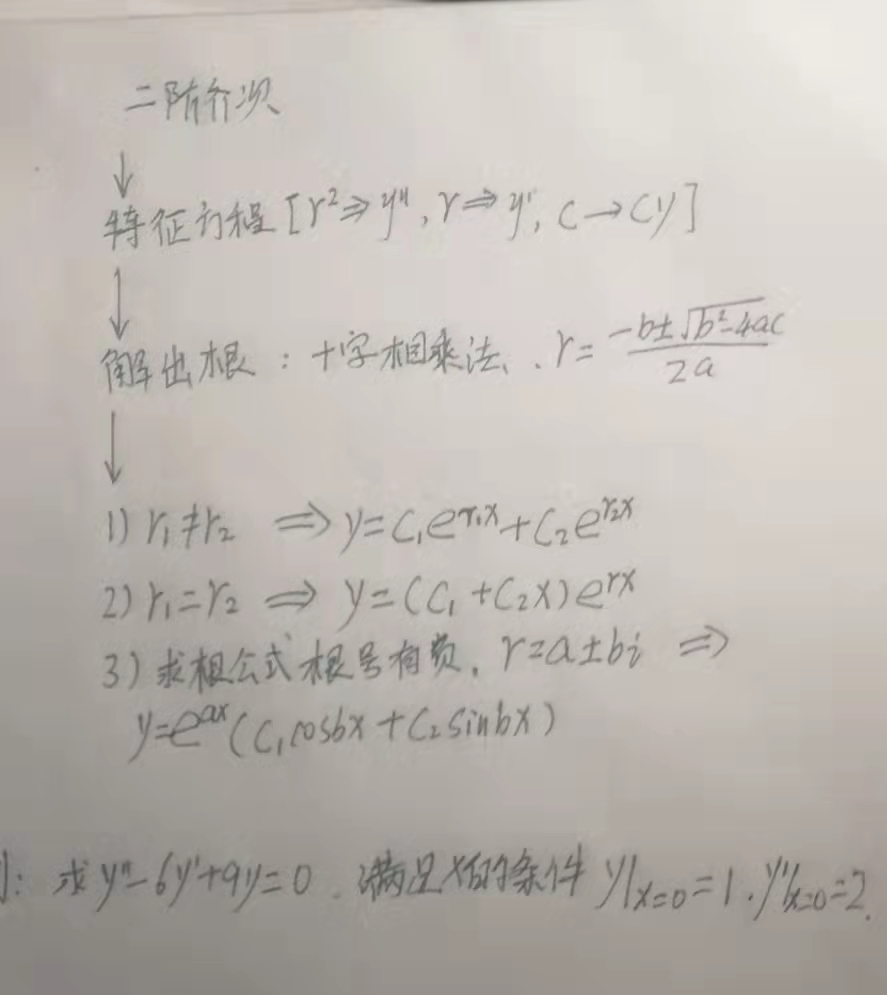 二阶齐次
↓
特征方程[r²⇒y",r⇒y',C→Cy]
↓
解出根:十字相乘法、.r=\frac{-b±\sqrt{b²-4ac}}{2a}
↓
1) r₁≠r₂ ⇒ y=C₁e^{r₁x}+C₂e^{r₂x}
2) r₁=r₂ ⇒ y=(C₁+C₂x)e^{rx}
3) 求根公式根号有负. r=a±bi ⇒
y=e^{ax}(C₁cosbx+C₂sinbx)
: 求y"-6y'+9y=0.满足X的条件 y|ₓ₌₀=1.y'|ₓ₌₀=2.